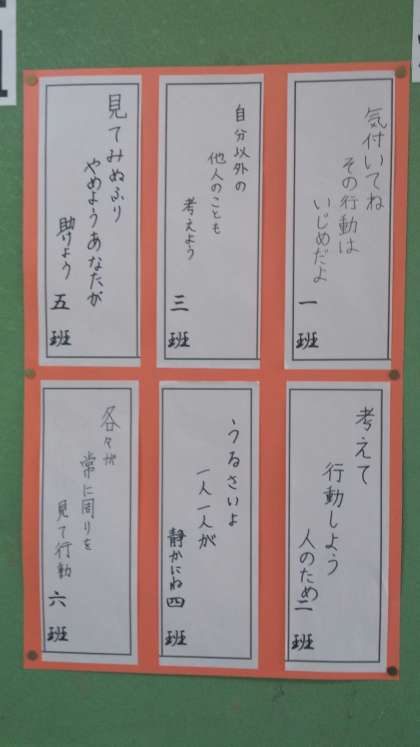 気付いてね
その行動は
いじめだよ
一班
考えて
行動しよう
人のため
二班
自分以外の
他人のことも
考えよう
三班
うるさいよ
一人一人が
静かにね
四班
見てみぬふり
やめようあなたが
助けよう
五班
各々が
常に周りを
見て行動
六班